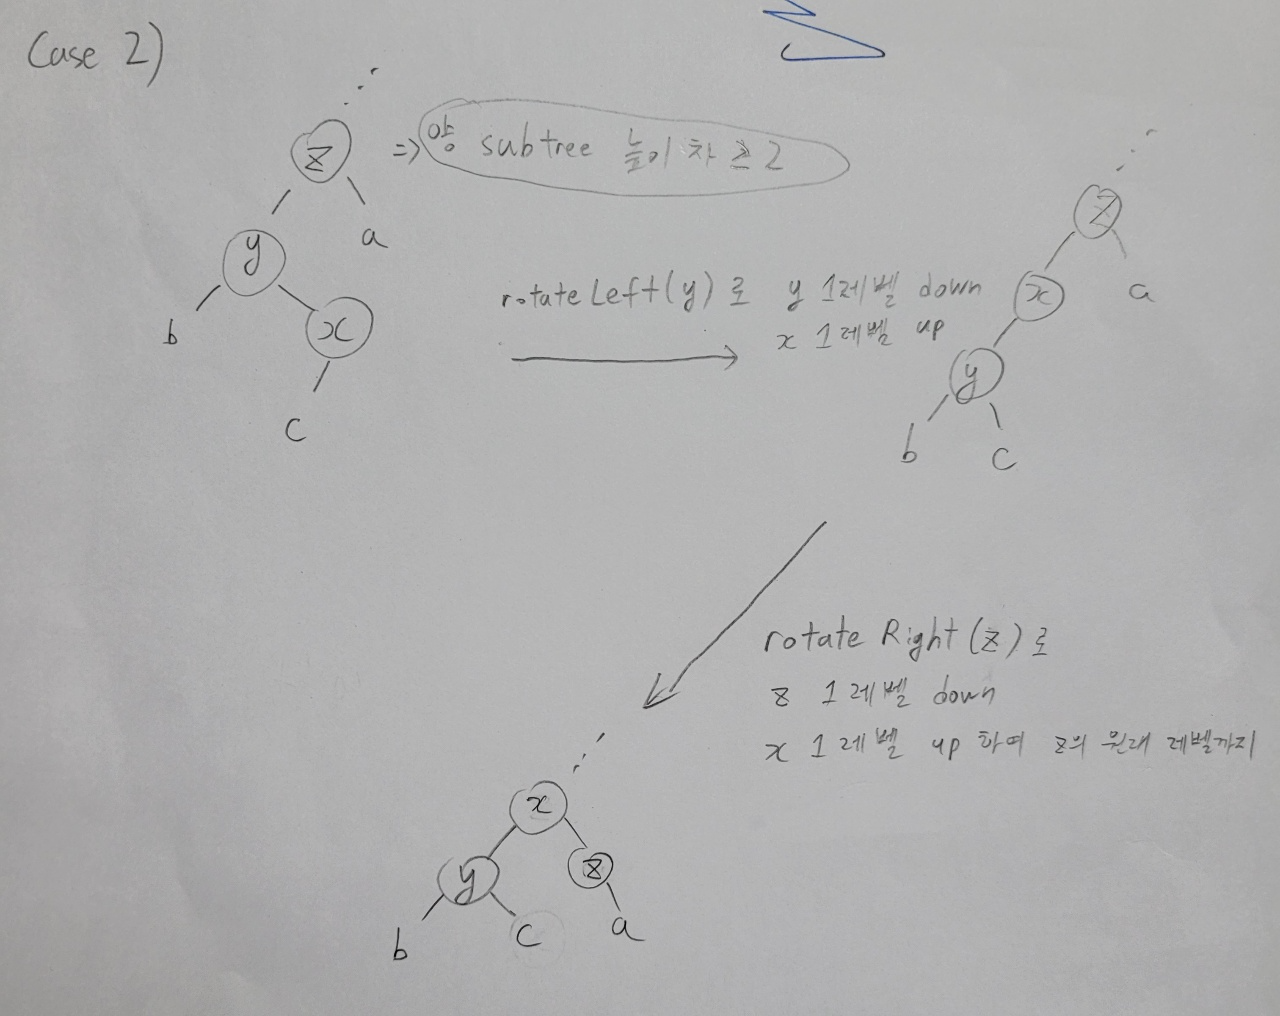 Case 2)
z
⇒ 양 subtree 높이 차 ≥ 2
y
a
b
x
c
rotateLeft(y)로 y 1레벨 down
x 1레벨 up
z
x
a
y
b
c
rotateRight(z)로
z 1레벨 down
x 1레벨 up 하여 z의 원래 레벨까지
x
y
z
b
c
a